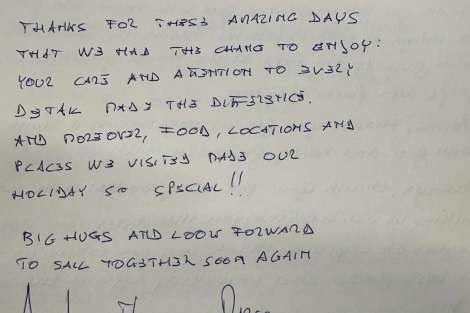 THANKS FOR THESE AMAZING DAYS
THAT WE HAD THE CHANG TO ENJOY:
YOUR CARE AND ATENTION TO EVERY
DETAIL MADE THE DIFFERENCE.
AND MOREOVER, FOOD, LOCATIONS AND
PLACES WE VISITED MADE OUR
HOLIDAY SO SPECIAL!!
BIG HUGS AND LOOK FORWARD
TO SAIL TOGETHER SOON AGAIN